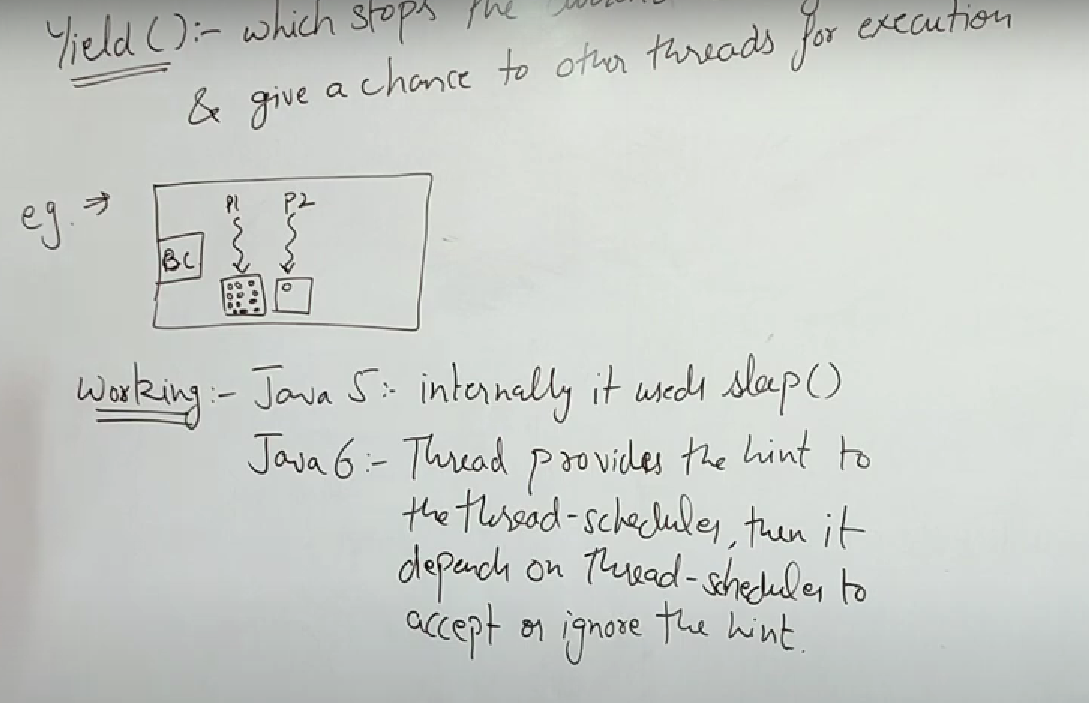 Yield():- which stops the
& give a chance to other threads for execution
eg. ⇒
P1 P2
BC
Working:- Java 5:- internally it used sleep()
Java 6:- Thread provides the hint to
the thread-scheduler, then it
depends on Thread-scheduler to
accept or ignore the hint.